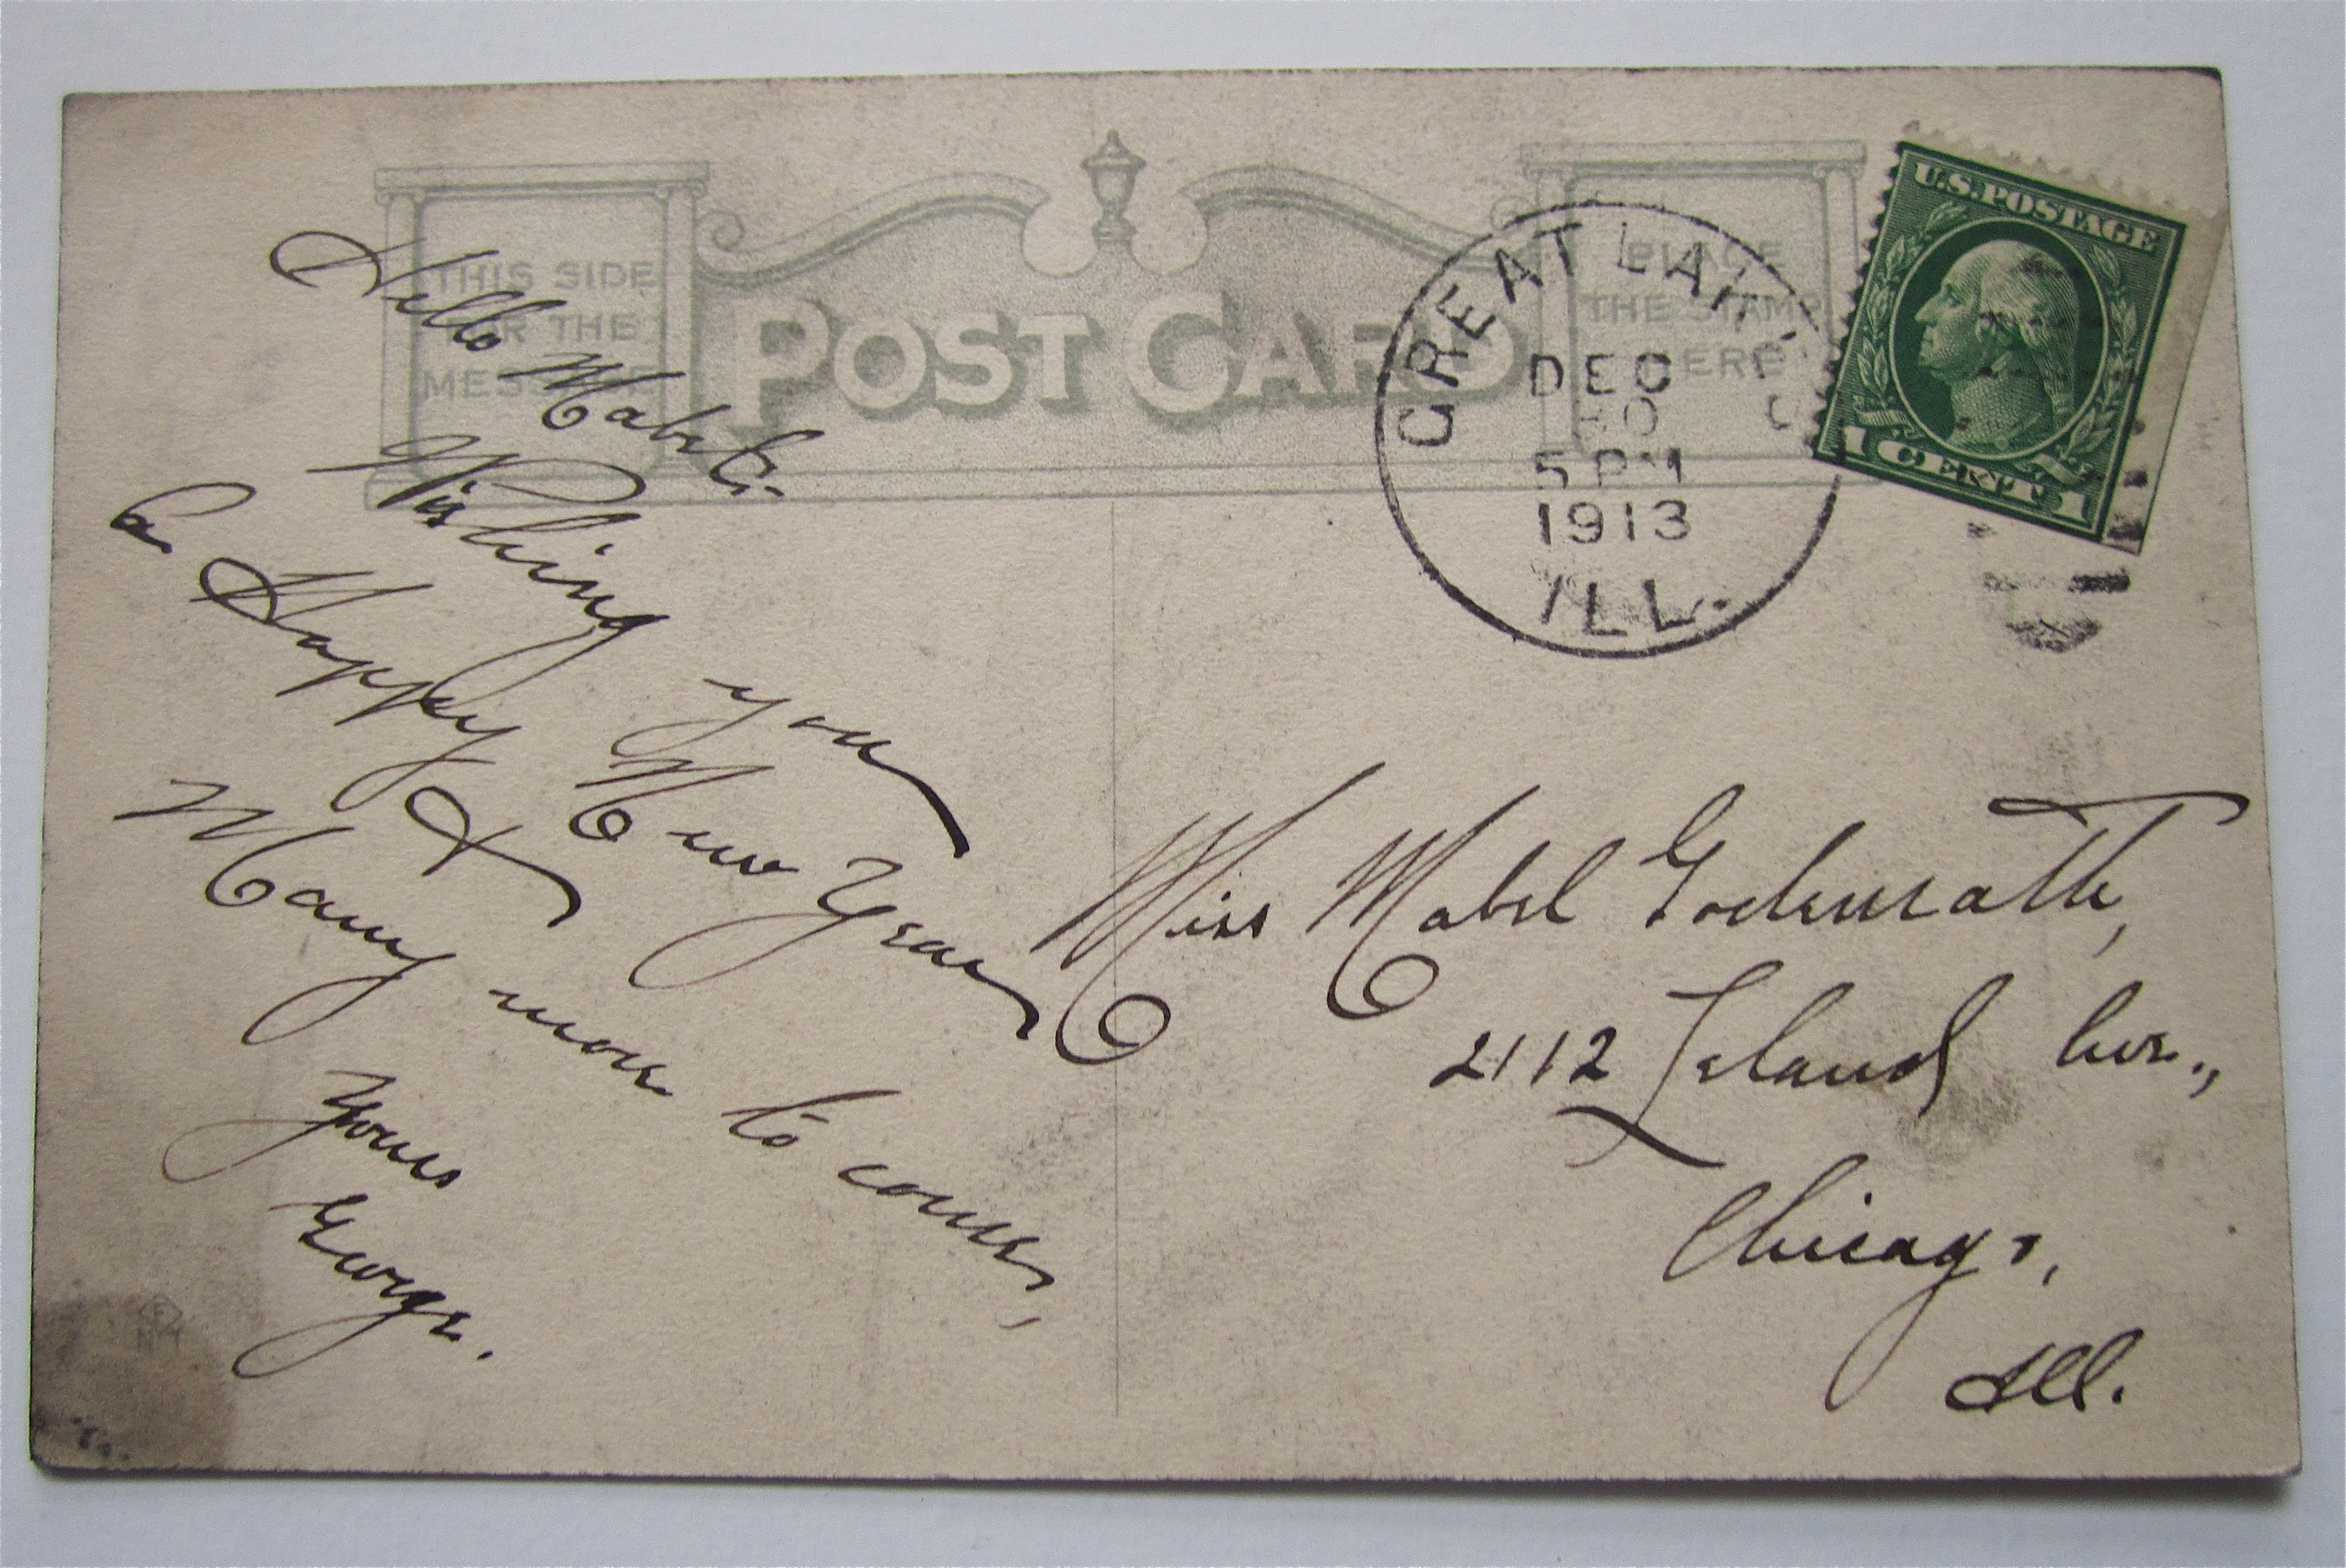 THIS SIDE
FOR THE
MESSAGE
POST CARD
PLACE
THE STAMP
HERE
GREAT LAKES
DEC
30
5 PM
1913
ILL.
U.S. POSTAGE
1 CENT 1
Hello Mabel:-
Wishing you
a Happy New Year
&
Many more to come,
Yours
George.
Miss Mabel Godenrath,
2112 Leland Ave.,
Chicago,
Ill.